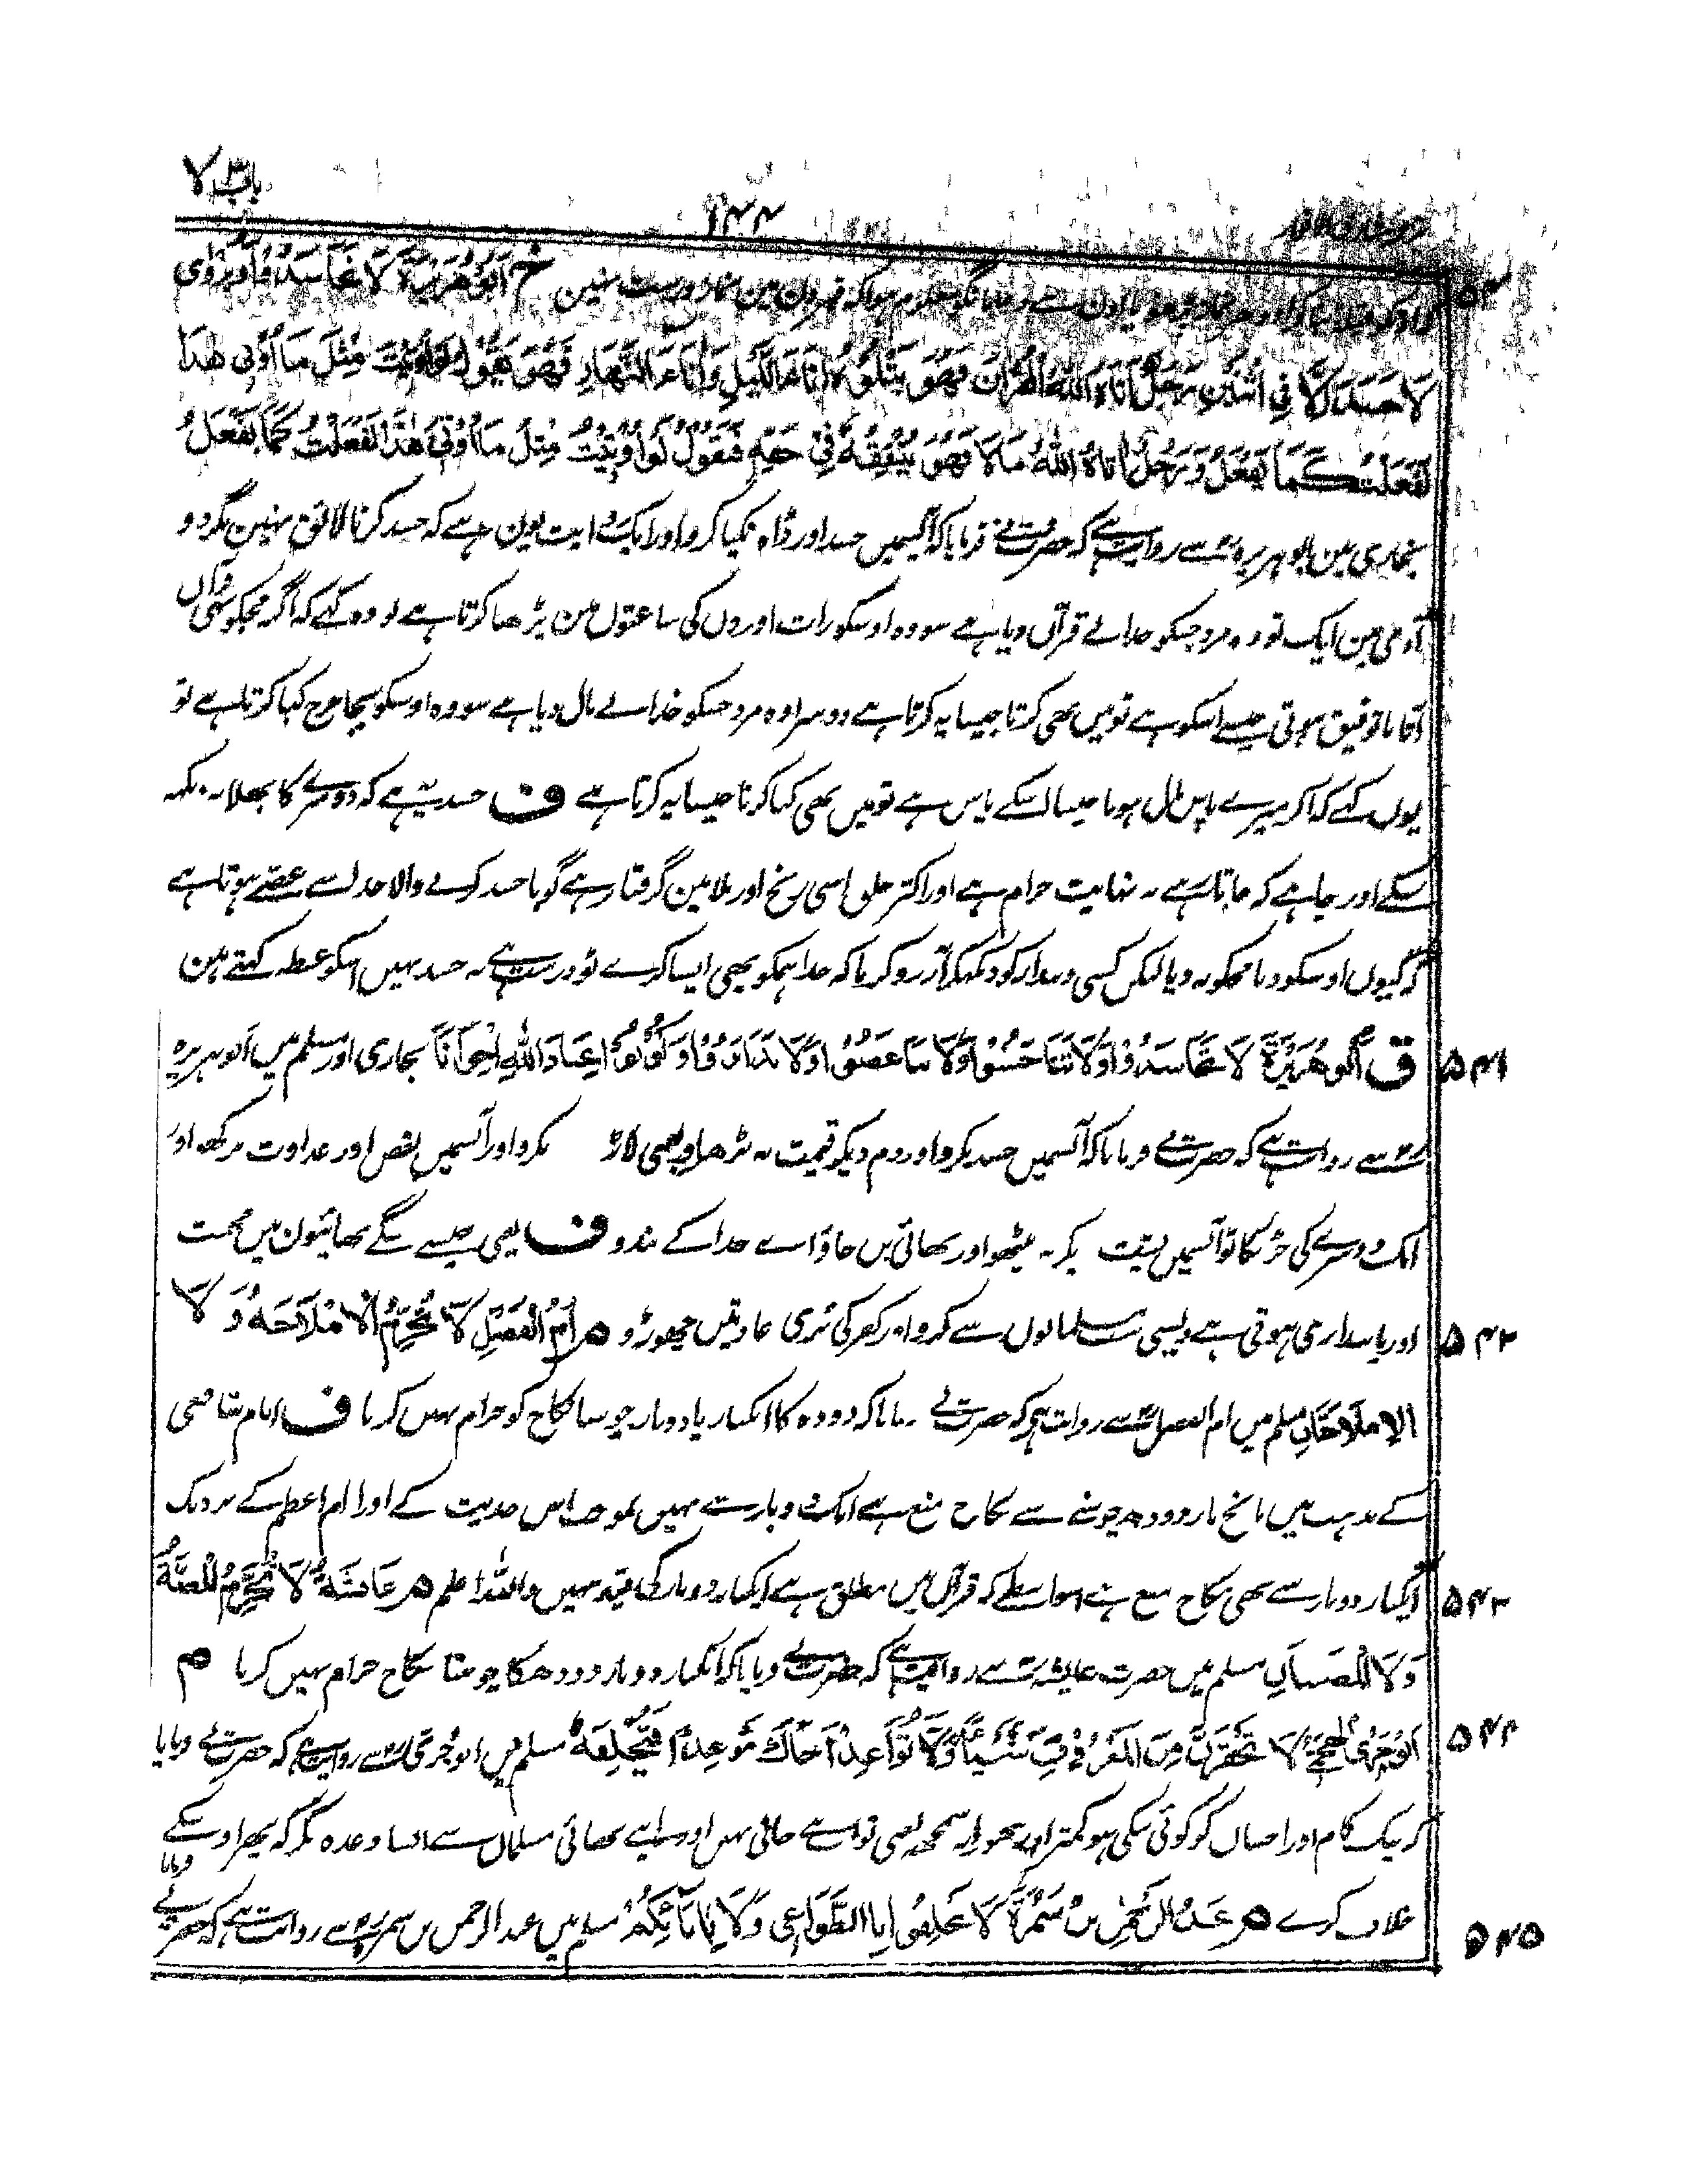 باب ٣ لا
١٤٤
٥٤٠
خ اَبُوْهُرَيْرَةَ لَا تَحَاسَدُوْا وَيُرْوٰى
لَا حَسَدَ اِلَّا فِي اثْنَيْنِ رَجُلٌ اٰتَاهُ اللّٰهُ الْقُرْاٰنَ فَهُوَ يَتْلُوْهُ اٰنَاءَ اللَّيْلِ وَاٰنَاءَ النَّهَارِ فَهُوَ يَقُوْلُ لَوْ اُوْتِيْتُ مِثْلَ مَا اُوْتِيَ هٰذَا
لَفَعَلْتُ كَمَا يَفْعَلُ وَرَجُلٌ اٰتَاهُ اللّٰهُ مَالًا فَهُوَ يُنْفِقُهُ فِيْ حَقِّهٖ فَيَقُوْلُ لَوْ اُوْتِيْتُ مِثْلَ مَا اُوْتِيَ هٰذَا لَفَعَلْتُ كَمَا يَفْعَلُ
بخاری مین ابوہریرہ رض سے روایت ہے کہ حضرت نے فرمایا کہ آپسمیں حسد اور ڈاہ نکیا کرو اور ایک روایت یون ہے کہ حسد کرنا لائق نہین مگر دو
آدمی مین ایک تو وہ مرد جسکو خدا نے قرآن دیا ہے سو وہ اوسکو رات اور دن کی ساعتوں مین پڑھا کرتا ہے تو وہ کہے کہ اگر مجکو بھی قرآن
آتا یا توفیق ہوتی جیسے اسکو ہے تو میں بھی کرتا جیسا یہ کرتا ہے دوسرا وہ مرد جسکو خدا نے مال دیا ہے سو وہ اوسکو بجا خرچ کیا کرتا ہے تو
یوں کہے کہ اگر میرے پاس مال ہوتا جیسا اسکے پاس ہے تو میں بھی کیا کرتا جیسا یہ کرتا ہے ف حسد یہ ہے کہ دوسرے کا بھلا نہ دیکھ
سکے اور چاہے کہ جاتا رہے یہ نہایت حرام ہے اور اکثر خلق اسی رنج اور بلا مین گرفتار ہے گویا حسد کرنے والا خدا سے غصے ہوتا ہے
کہ کیوں اوسکو دیا مجکو نہ دیا لیکن کسی دیندار کو دیکھکر آرزو کرنا کہ خدا ہمکو بھی ایسا کرے تو درست ہے یہ حسد نہیں اسکو غبطہ کہتے ہین
٥٤١ ق اَبُوْهُرَيْرَةَ لَا تَحَاسَدُوْا وَلَا تَنَاجَشُوْا وَلَا تَبَاغَضُوْا وَلَا تَدَابَرُوْا وَكُوْنُوْا عِبَادَ اللّٰهِ اِخْوَانًا بخاری اور مسلم میں ابوہریرہ
رض سے روایت ہے کہ حضرت نے فرمایا کہ آپسمیں حسد نکرو اور دم دیکر قیمت نہ بڑھاؤ یعنی لاڑ نکرو اور آپسمیں بغض اور عداوت نرکھو اور
ایک دوسرے کی جڑ نکاٹو آپسمیں پشت دیکر نہ بیٹھو اور بھائی بن جاؤ اے خدا کے بندو ف یعنی جیسے سگے بھائیون میں محبت
٥٤٢ اور پاسداری ہوتی ہے ویسی سب مسلمانوں سے کرو اور کفر کی بُری عادتیں چھوڑو م اُمُّ الْفَضْلِ لَا تُحَرِّمُ الْاِمْلَاجَةُ وَلَا
الْاِمْلَاجَتَانِ مسلم میں ام الفضل رض سے روایت ہے کہ حضرت نے فرمایا کہ دودہ کا ایکبار یا دوبار چوسنا نکاح کو حرام نہیں کرتا ف امام شافعی
کے مذہب میں پانچ بار دودھ چوسنے سے نکاح منع ہے ایک دو بار سے نہیں بموجب اس حدیث کے اور امام اعظم کے نزدیک
٥٤٣ ایکبار دوبار سے بھی نکاح منع ہے اسواسطے کہ قرآن میں مطلق ہے ایکبار دوبار کی قید نہیں واللہ اعلم م عَائِشَةُ لَا تُحَرِّمُ الْمَصَّةُ
وَلَا الْمَصَّتَانِ مسلم میں حضرت عایشہ رض سے روایت ہے کہ حضرت نے فرمایا کہ ایکبار دوبار دودھ کا چوسنا نکاح حرام نہیں کرتا م
٥٤٤ اَبُوْجُرَيِّ الْهُجَيْمِيُّ لَا تَحْقِرَنَّ مِنَ الْمَعْرُوْفِ شَيْئًا وَلَا تُوَاعِدْ اَخَاكَ مَوْعِدًا فَتُخْلِفَهُ مسلم میں ابو جری رض سے روایت ہے کہ حضرت نے فرمایا
کہ نیک کام اور احسان کو کوئی نیکی ہو کمتر اور تھوڑا نہ سمجھ یعنی ثواب سے خالی نہیں اور اپنے بھائی مسلمان سے ایسا وعدہ نکر کہ پھر اوسکے
٥٤٥ خلاف کرے م عَبْدُ الرَّحْمٰنِ بْنُ سَمُرَةَ لَا تَحْلِفُوْا بِالطَّوَاغِيْ وَلَا بِاٰبَائِكُمْ مسلم میں عبد الرحمن بن سمرہ رض سے روایت ہے کہ حضرت نے فرمایا